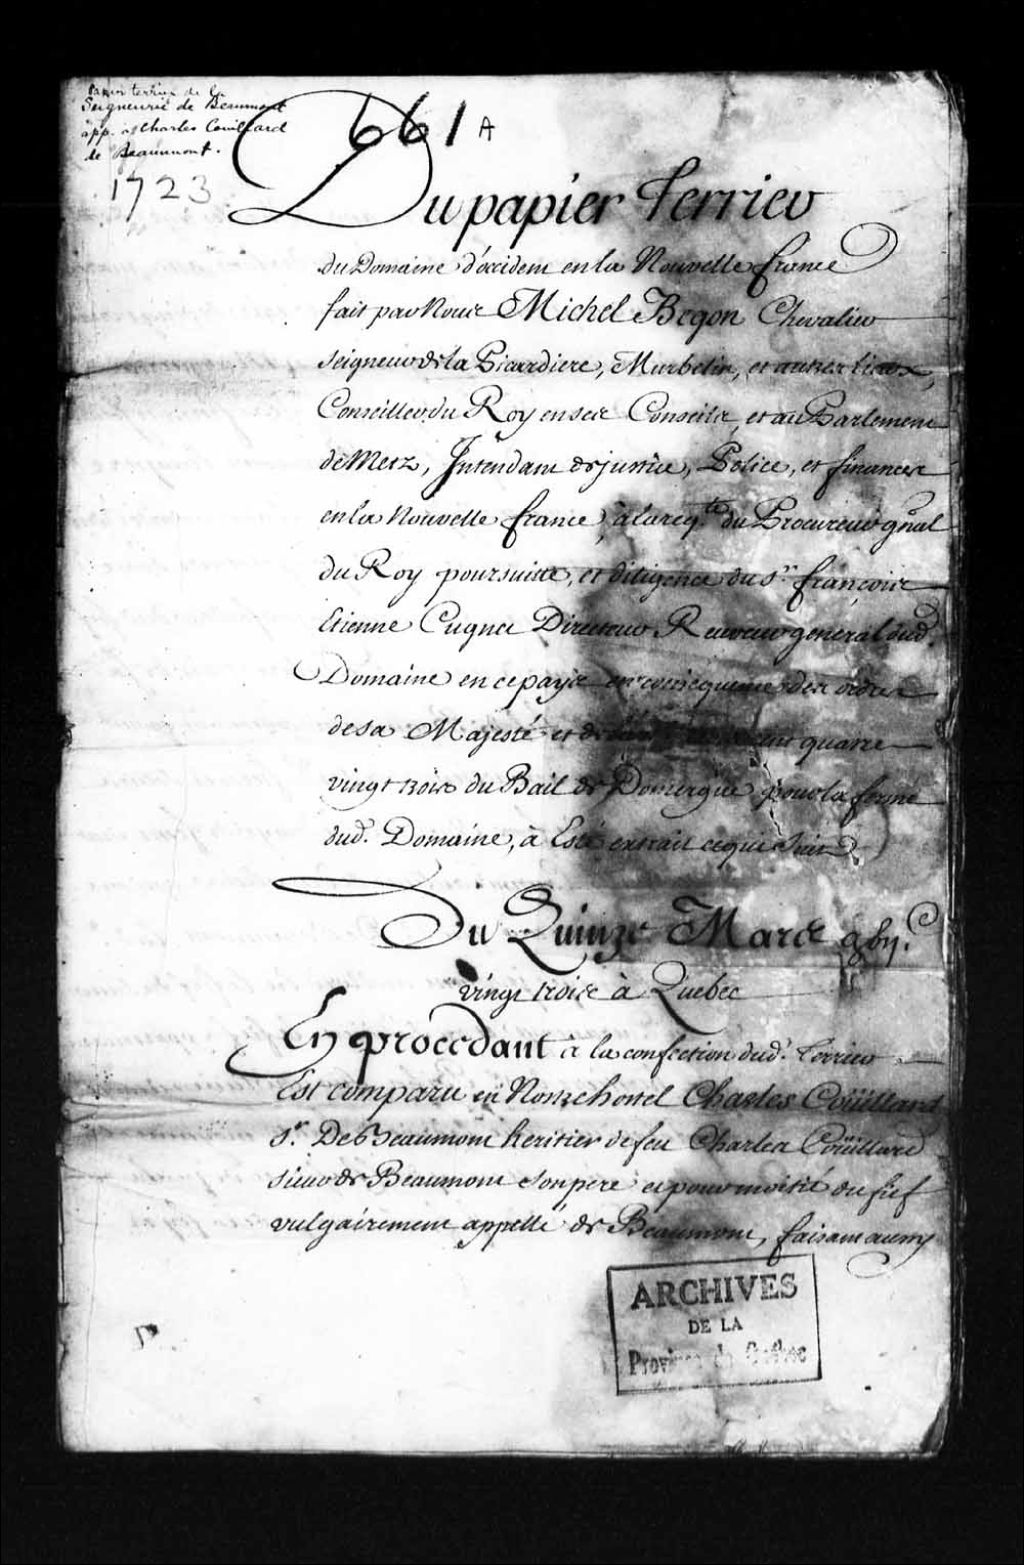 Papier terrier de la
Seigneurie de Beaumont
app. à Charles Couillard
de Beaumont.
661 A
1723
Du papier Terrier
du Domaine d'occident en la Nouvelle france
fait par Nous Michel Begon Chevalier
seigneur de la Picardiere, Murbelin, et autres lieux,
Conseiller du Roy en ses Conseils, et au Parlement
de Metz, Intendant de justice, Police, et finances
en la Nouvelle france, à la req.te du Procureur gñal
du Roy poursuitte, et diligence du s.r françois
Etienne Cugnet Directeur Receveur general dud.
Domaine en ce pays en consequence des ordres
de sa Majesté et de quatre
vingt trois du Bail de Domergue pour la ferme
dud. Domaine, à Esté extrait ce qui suit
Du Quinze Mars gbij.c
vingt trois à Quebec
En procedant à la confection dud. Terrier
Est comparu en Notre hostel Charles Coüillard
s.r De Beaumont heritier de feu Charles Coüillard
sieur de Beaumont son pere et pour moitié du fief
vulgairement appellé de Beaumont, faisant au nom
ARCHIVES
DE LA
Province de Québec